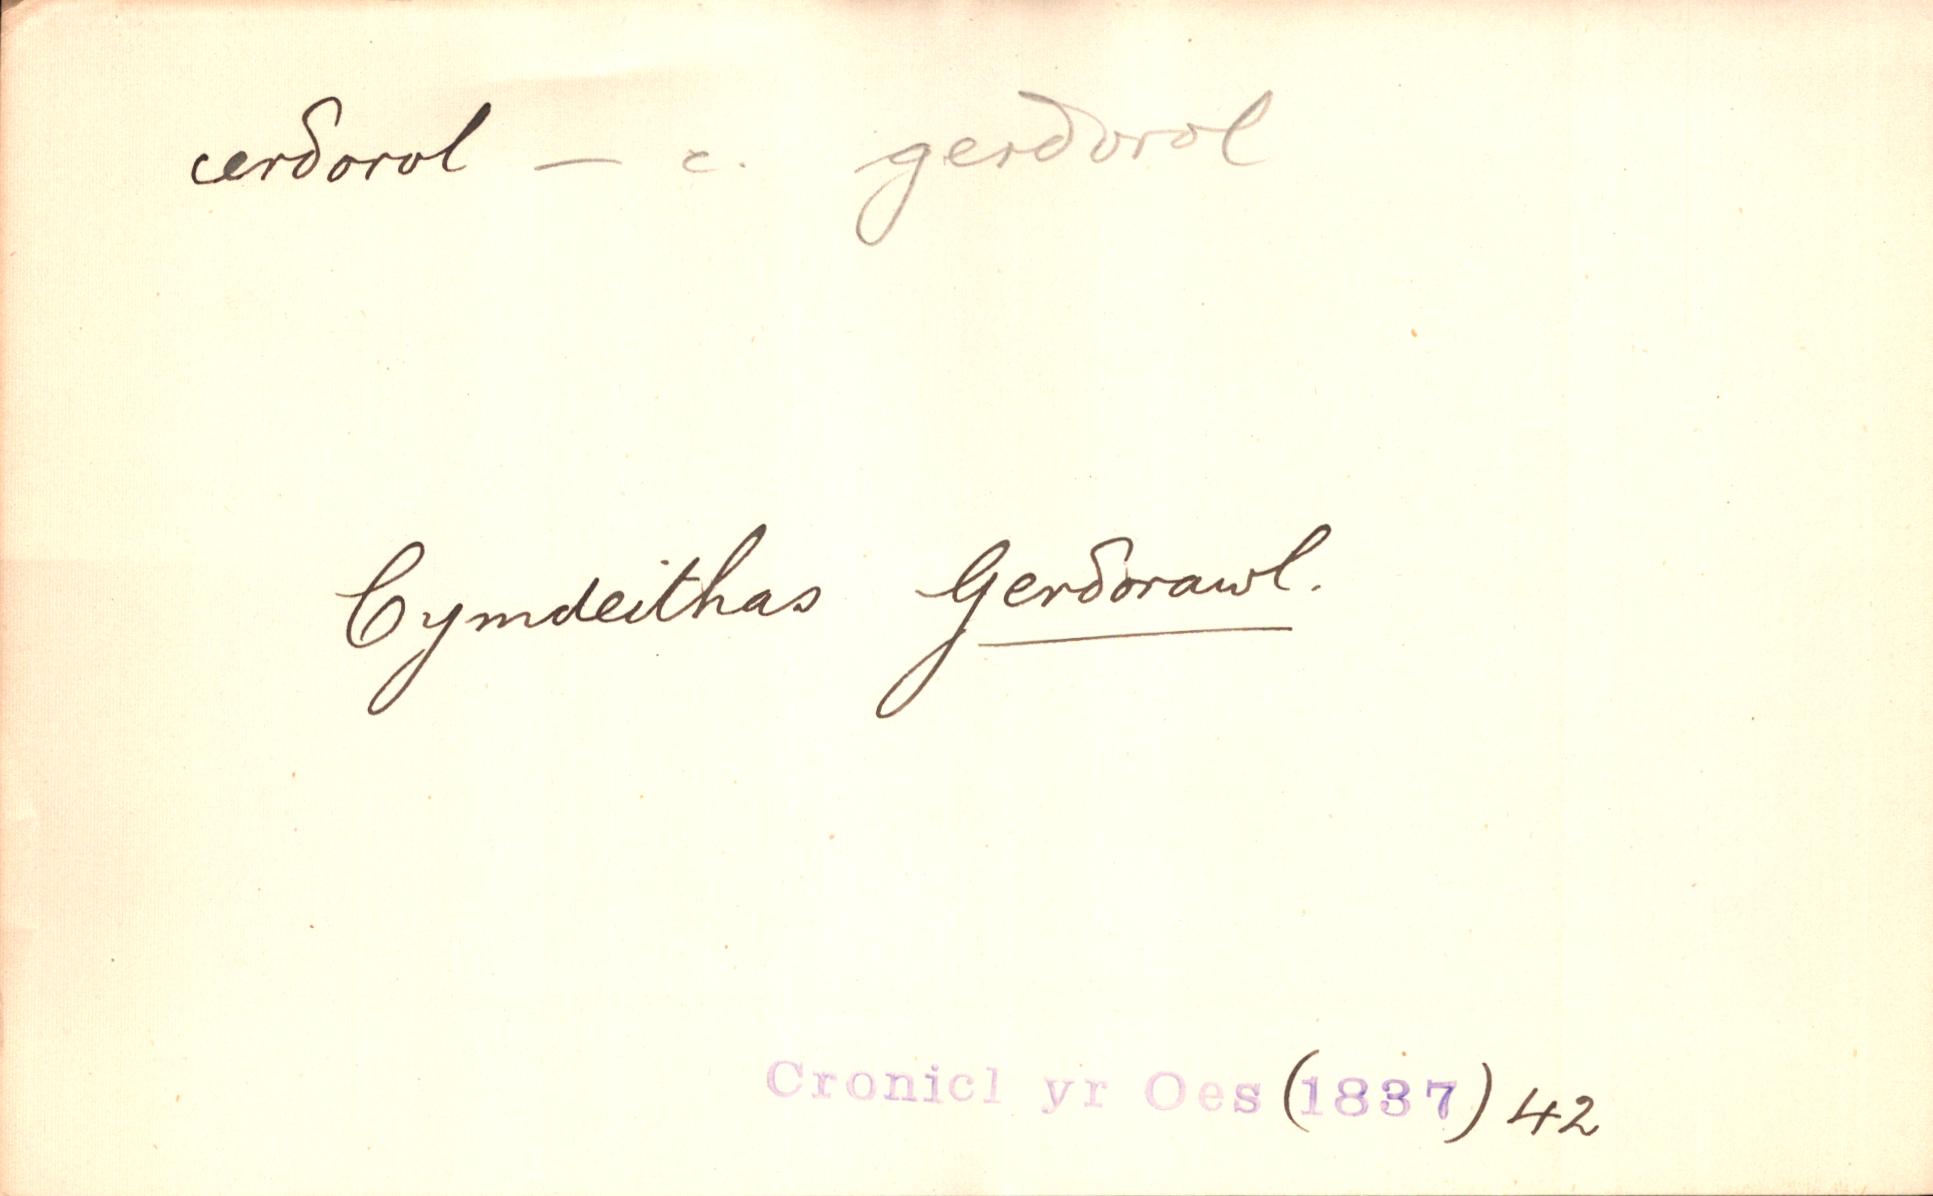 cerδorol — c. gerδorol
Cymdeithas Gerδorawl.
Cronicl yr Oes (1837) 42